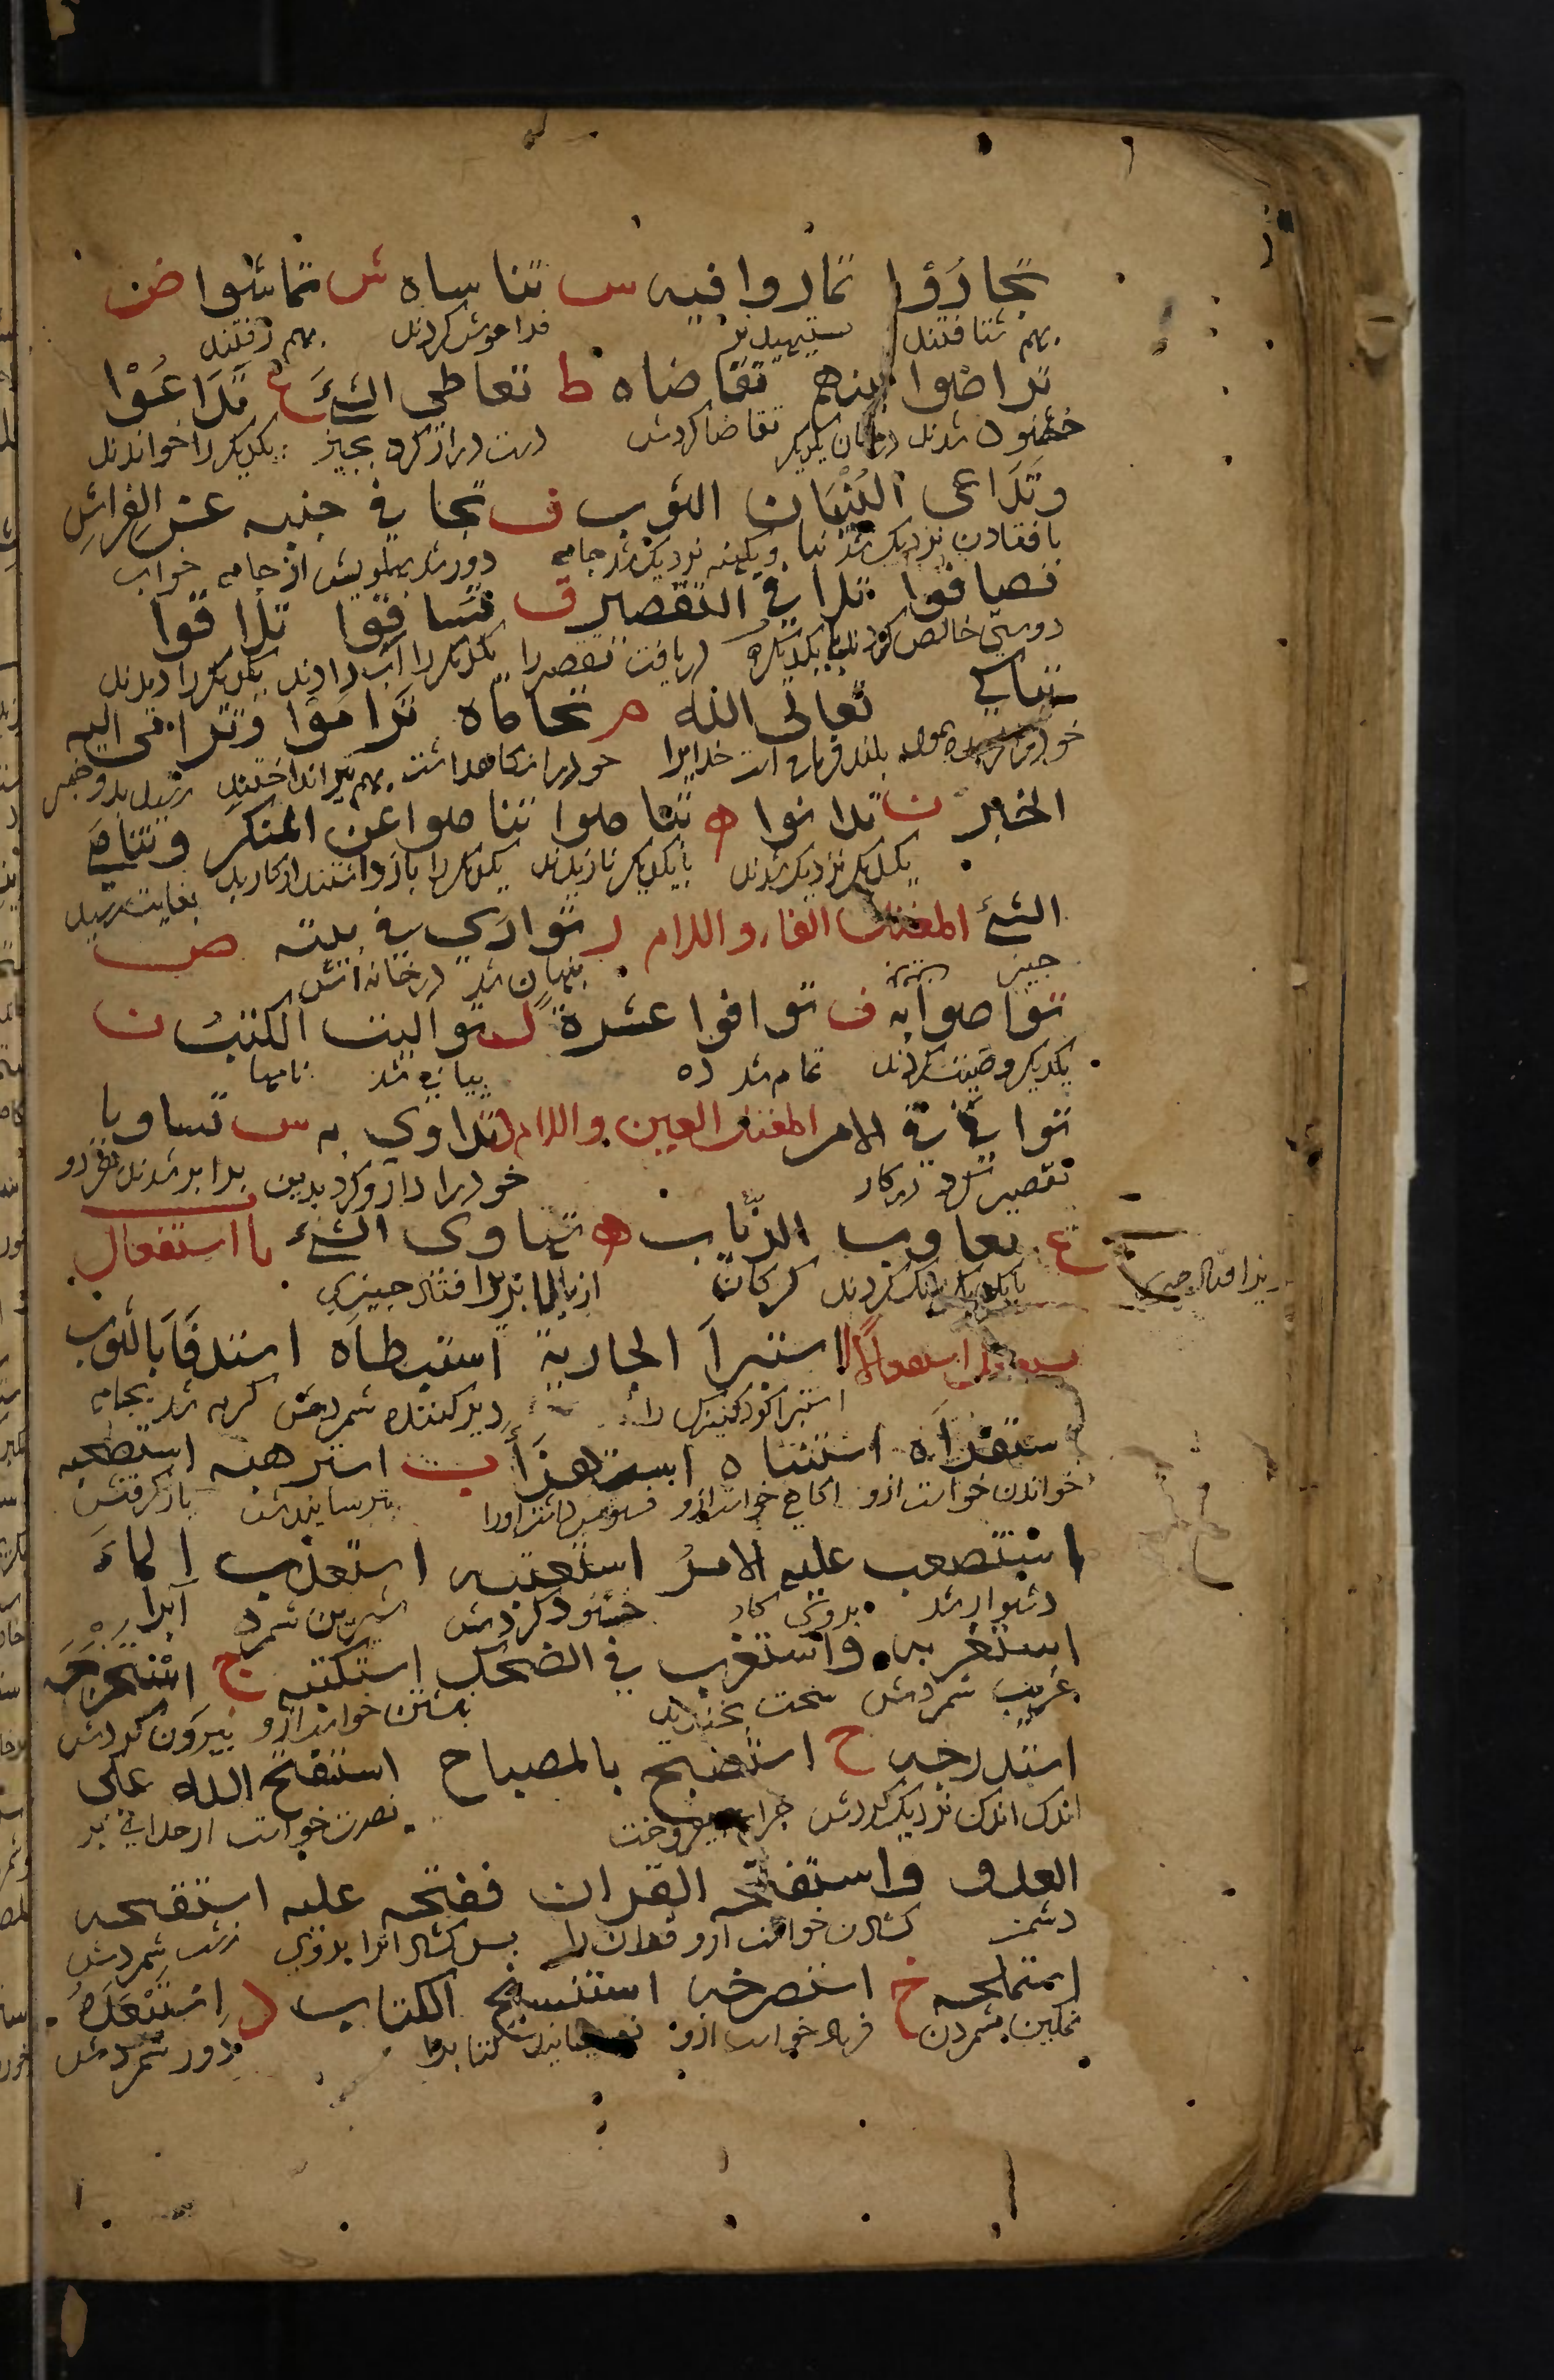 تجاروا تماروا فيه س تناساه ش تماشوا ض
بهم شتافتند ستيهيدند فراموش كردند بهم رفتند
تراضوا بينهم تقاضاه ط تعاطى الشئ ع تداعوا
خشنود شدند درميان يكديكر تقاضا كردش دست دراز كرد بجيز يكديكر را خواندند
وتداعى البنيان الثوب ف تجافى جنبه عن الفراش
بافتادن نزديك شد بنا وبكهنه نزديك شد جامه دور شد بهلويش از جامه خواب
تصافوا تلافى التقصير ق تساقوا تلاقوا
دوستى خالص كردند با يكديكر دريافت تقصير را يكديكر را آب دادند يكديكر را ديدند
تباكى تعالى الله م تحاماه تراموا وترامى اليه
بلند وبزرك است خدا خود را از نكاه داشت بهم تير انداختند رسيد بدو خبر
الخبر ن تدانوا ه تباهوا تناهوا عن المنكر وتناهى
بيكديكر نزديك شدند با يكديكر نازيدند يكديكر را باز داشتند از كار بد بغايت رسيد
الشئ المعتل الفاء واللام ر توارى فى بيته ص
جيز بنهان شد درخانه اش
تواصوا به ف توافوا عشرة ل توالت الكتب ن
يكديكر وصيت كردند تمام شد ده بيابى شد نامها
توانى فى الامر المعتل العين واللام تداوى به س تساويا
تقصير كرد در كار خود را دارو كرد بدين برابر شدند هر دو
ع تعاوت الذئاب ه تهاوى الشئ باب استفعال
بايكديكر بانك كردند كركان از بالا بزير افتاد جيزى
استفعل استفعالا استبرأ الجارية استبطأه استدفأ بالثوب
استبرا كرد كنيزك را دير كننده شمردش كرم شد بجامه
ستقرأه استثناه استهزأ ب استرهبه استصحبه
خواندن خواست ازو بترسانيدش
استصعب عليه الامر استعتبه استعذب الماء
دشوار شد بروى كار خشنود كردش شيرين شمرد آبرا
استغربه واستغرب فى الضحك استكتبه ج استخرجه
غريب شمردش سخت بخنديد نبشتن خواست ازو بيرون كردش
استدرجه ح استصبح بالمصباح استفتح الله على
اندك اندك نزديك كردش جراغ بيفروخت نصرت خواست از خداى بر
العدو واستفتحه القران ففتحه عليه استقبحه
دشمن كشادن خواست ازو قران را بس كشاد انرا بروى زشت شمردش
استملحه خ استصرخه استنسخ الكتاب د استبعده
نمكين شمردن فرياد خواست ازو دور شمردش